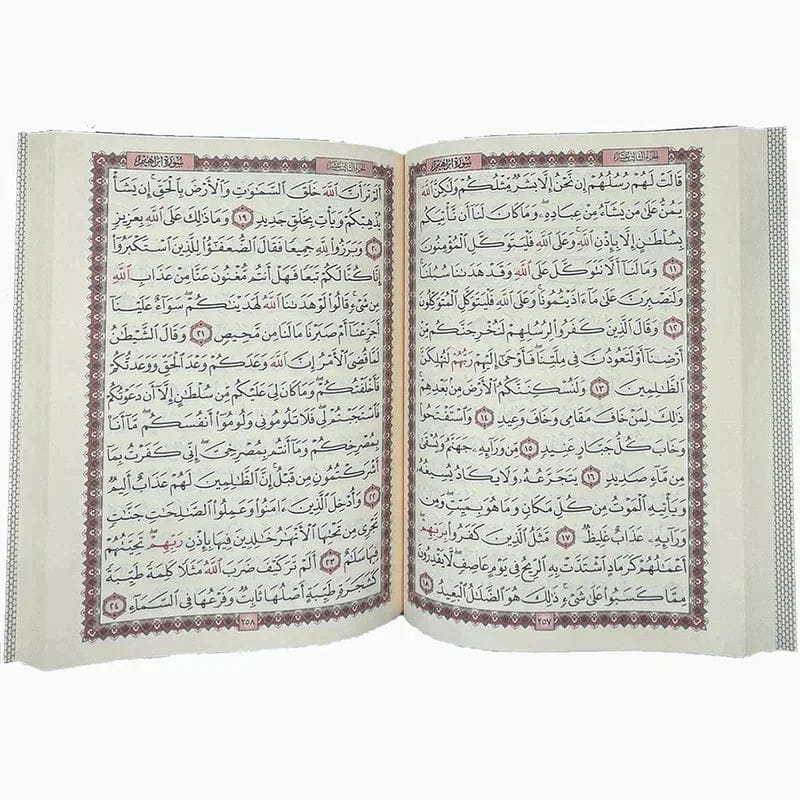 الجزء الثالث عشر سورة إبراهيم
قَالَتْ لَهُمْ رُسُلُهُمْ إِن نَّحْنُ إِلَّا بَشَرٌ مِّثْلُكُمْ وَلَٰكِنَّ ٱللَّهَ
يَمُنُّ عَلَىٰ مَن يَشَآءُ مِنْ عِبَادِهِۦ ۖ وَمَا كَانَ لَنَآ أَن نَّأْتِيَكُم
بِسُلْطَٰنٍ إِلَّا بِإِذْنِ ٱللَّهِ ۚ وَعَلَى ٱللَّهِ فَلْيَتَوَكَّلِ ٱلْمُؤْمِنُونَ
١١ وَمَا لَنَآ أَلَّا نَتَوَكَّلَ عَلَى ٱللَّهِ وَقَدْ هَدَىٰنَا سُبُلَنَا ۚ
وَلَنَصْبِرَنَّ عَلَىٰ مَآ ءَاذَيْتُمُونَا ۚ وَعَلَى ٱللَّهِ فَلْيَتَوَكَّلِ ٱلْمُتَوَكِّلُونَ
١٢ وَقَالَ ٱلَّذِينَ كَفَرُوا۟ لِرُسُلِهِمْ لَنُخْرِجَنَّكُم مِّنْ
أَرْضِنَآ أَوْ لَتَعُودُنَّ فِى مِلَّتِنَا ۖ فَأَوْحَىٰٓ إِلَيْهِمْ رَبُّهُمْ لَنُهْلِكَنَّ
ٱلظَّٰلِمِينَ ١٣ وَلَنُسْكِنَنَّكُمُ ٱلْأَرْضَ مِنۢ بَعْدِهِمْ ۚ
ذَٰلِكَ لِمَنْ خَافَ مَقَامِى وَخَافَ وَعِيدِ ١٤ وَٱسْتَفْتَحُوا۟
وَخَابَ كُلُّ جَبَّارٍ عَنِيدٍ ١٥ مِّن وَرَآئِهِۦ جَهَنَّمُ وَيُسْقَىٰ
مِن مَّآءٍ صَدِيدٍ ١٦ يَتَجَرَّعُهُۥ وَلَا يَكَادُ يُسِيغُهُۥ
وَيَأْتِيهِ ٱلْمَوْتُ مِن كُلِّ مَكَانٍ وَمَا هُوَ بِمَيِّتٍ ۖ وَمِن
وَرَآئِهِۦ عَذَابٌ غَلِيظٌ ١٧ مَّثَلُ ٱلَّذِينَ كَفَرُوا۟ بِرَبِّهِمْ ۖ
أَعْمَٰلُهُمْ كَرَمَادٍ ٱشْتَدَّتْ بِهِ ٱلرِّيحُ فِى يَوْمٍ عَاصِفٍ ۖ لَّا يَقْدِرُونَ
مِمَّا كَسَبُوا۟ عَلَىٰ شَىْءٍ ۚ ذَٰلِكَ هُوَ ٱلضَّلَٰلُ ٱلْبَعِيدُ ١٨
٢٥٧
الجزء الثالث عشر سورة إبراهيم
أَلَمْ تَرَ أَنَّ ٱللَّهَ خَلَقَ ٱلسَّمَٰوَٰتِ وَٱلْأَرْضَ بِٱلْحَقِّ ۚ إِن يَشَأْ
يُذْهِبْكُمْ وَيَأْتِ بِخَلْقٍ جَدِيدٍ ١٩ وَمَا ذَٰلِكَ عَلَى ٱللَّهِ بِعَزِيزٍ
٢٠ وَبَرَزُوا۟ لِلَّهِ جَمِيعًا فَقَالَ ٱلضُّعَفَٰٓؤُا۟ لِلَّذِينَ ٱسْتَكْبَرُوٓا۟
إِنَّا كُنَّا لَكُمْ تَبَعًا فَهَلْ أَنتُم مُّغْنُونَ عَنَّا مِنْ عَذَابِ ٱللَّهِ
مِن شَىْءٍ ۚ قَالُوا۟ لَوْ هَدَىٰنَا ٱللَّهُ لَهَدَيْنَٰكُمْ ۖ سَوَآءٌ عَلَيْنَآ
أَجَزِعْنَآ أَمْ صَبَرْنَا مَا لَنَا مِن مَّحِيصٍ ٢١ وَقَالَ ٱلشَّيْطَٰنُ
لَمَّا قُضِىَ ٱلْأَمْرُ إِنَّ ٱللَّهَ وَعَدَكُمْ وَعْدَ ٱلْحَقِّ وَوَعَدتُّكُمْ
فَأَخْلَفْتُكُمْ ۖ وَمَا كَانَ لِىَ عَلَيْكُم مِّن سُلْطَٰنٍ إِلَّآ أَن دَعَوْتُكُمْ
فَٱسْتَجَبْتُمْ لِى ۖ فَلَا تَلُومُونِى وَلُومُوٓا۟ أَنفُسَكُم ۖ مَّآ أَنَا۠
بِمُصْرِخِكُمْ وَمَآ أَنتُم بِمُصْرِخِىَّ ۖ إِنِّى كَفَرْتُ بِمَآ
أَشْرَكْتُمُونِ مِن قَبْلُ ۗ إِنَّ ٱلظَّٰلِمِينَ لَهُمْ عَذَابٌ أَلِيمٌ
٢٢ وَأُدْخِلَ ٱلَّذِينَ ءَامَنُوا۟ وَعَمِلُوا۟ ٱلصَّٰلِحَٰتِ جَنَّٰتٍ
تَجْرِى مِن تَحْتِهَا ٱلْأَنْهَٰرُ خَٰلِدِينَ فِيهَا بِإِذْنِ رَبِّهِمْ ۖ تَحِيَّتُهُمْ
فِيهَا سَلَٰمٌ ٢٣ أَلَمْ تَرَ كَيْفَ ضَرَبَ ٱللَّهُ مَثَلًا كَلِمَةً طَيِّبَةً
كَشَجَرَةٍ طَيِّبَةٍ أَصْلُهَا ثَابِتٌ وَفَرْعُهَا فِى ٱلسَّمَآءِ ٢٤
٢٥٨